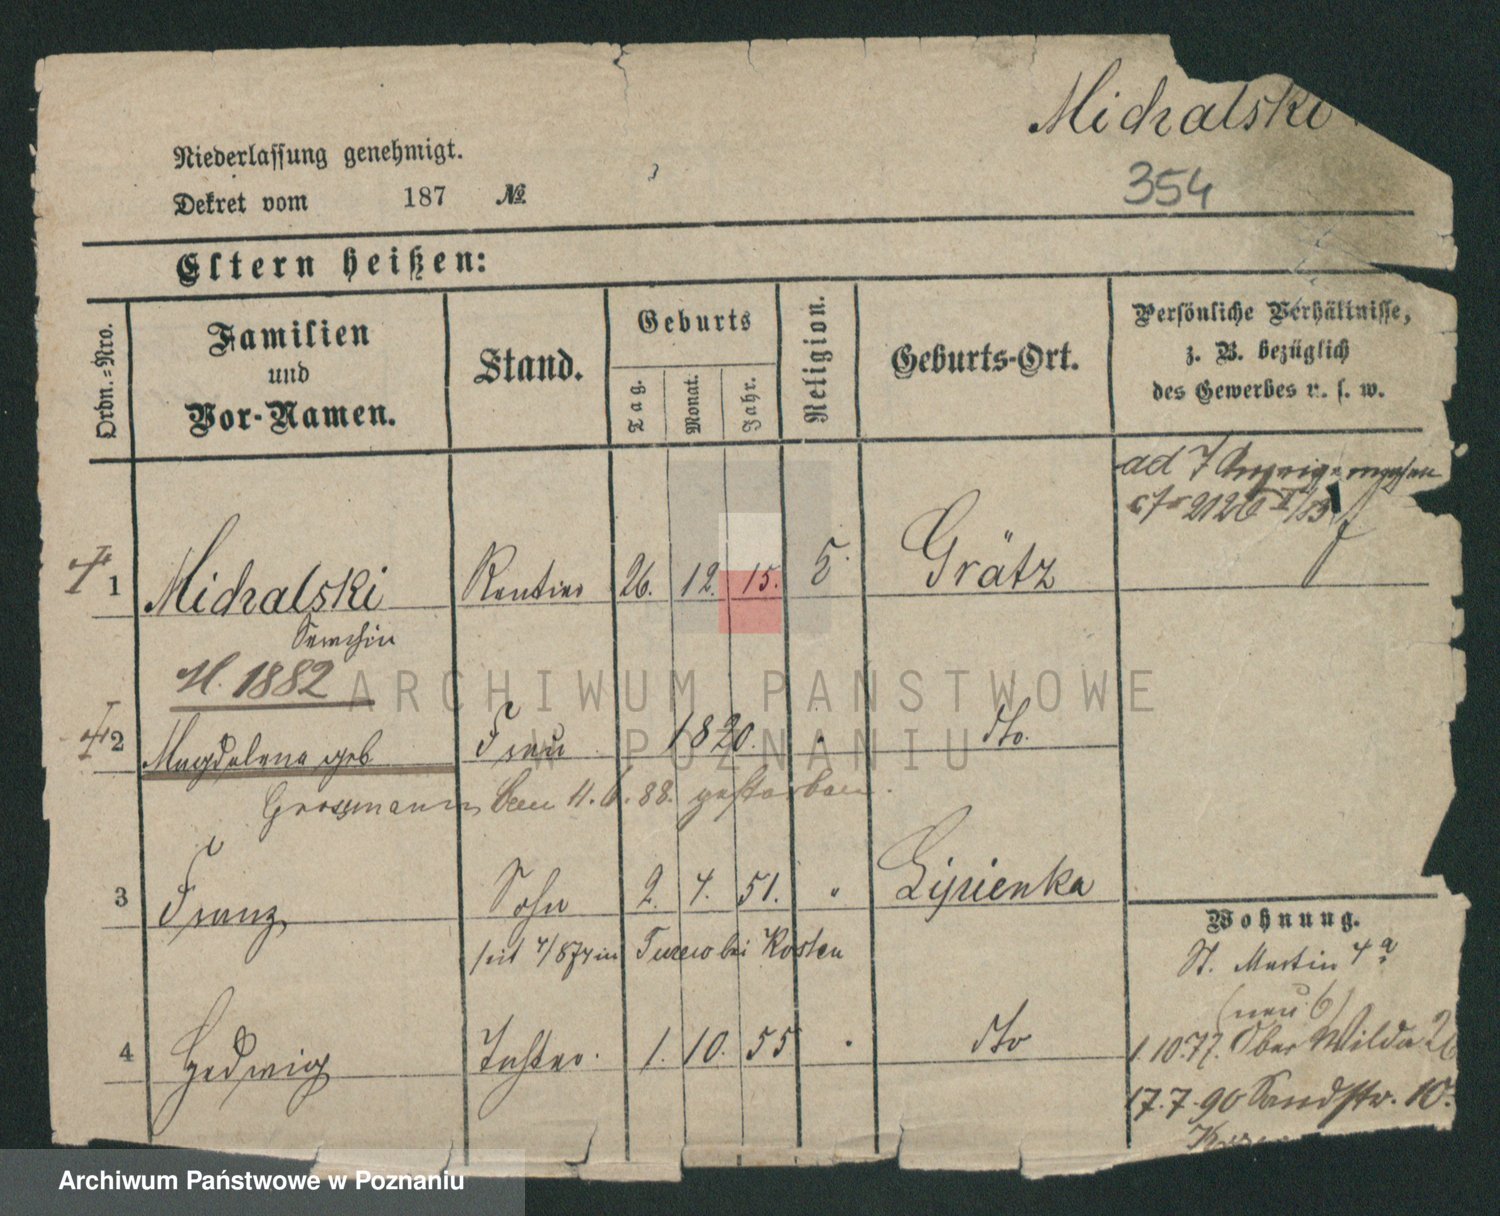 Michalski
354
Niederlassung genehmigt.
Dekret vom 187 №
Eltern heißen:
Ordn.=Nro.
Familien
und
Vor-Namen.
Stand.
Geburts
Tag.
Monat.
Jahr.
Religion.
Geburts-Ort.
Persönliche Verhältnisse,
z. B. bezüglich
des Gewerbes u. s. w.
ad 7
† 1 Michalski Rentier 26. 12. 15. Grätz
1882
† 2 Magdalena geb Frau 1820. " dto.
Grossmann den 11. 6. 88. gestorben.
3 Franz Sohn 2. 4. 51. " Lipienka
seit 4/874 in Turew bei Kosten
4 Hedwig Tochter. 1. 10. 55 " dto
Wohnung.
St. Martin 4 a
(neu 6)
1.10.77. Ober Wilda
17.7.90 Sandstr. 10.
ARCHIWUM PAŃSTWOWE
W POZNANIU
Archiwum Państwowe w Poznaniu